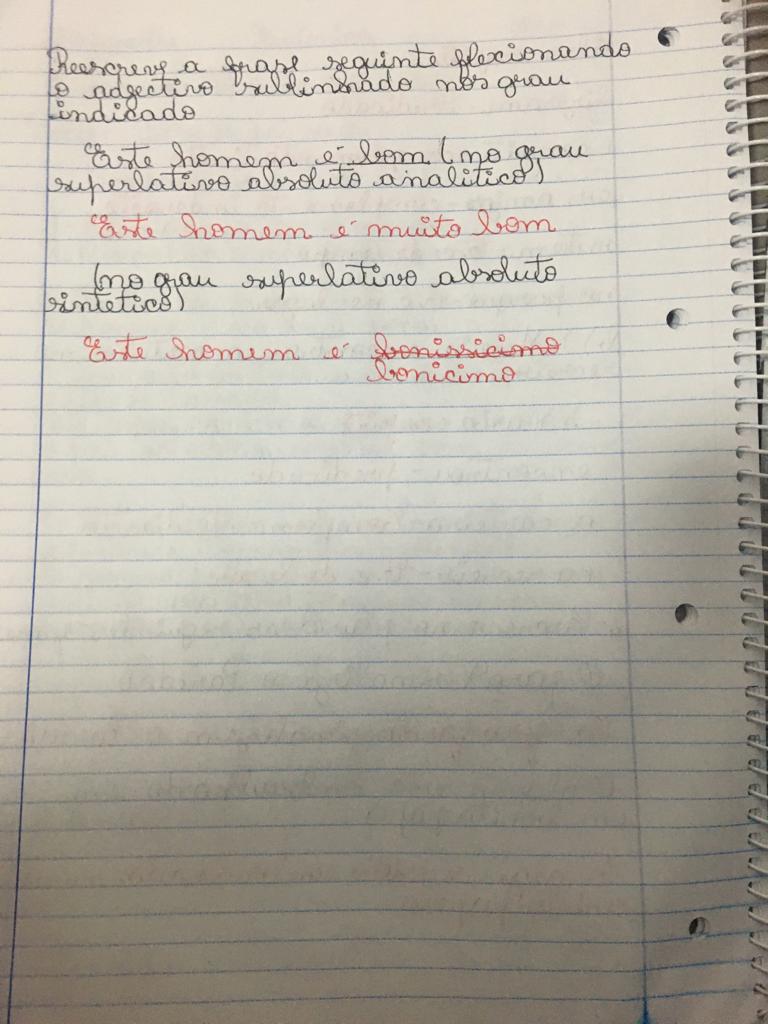 Reescreve a frase seguinte flexionando
o adjectivo sublinhado nos grau
indicado
Este homem é bom (no grau
superlativo absoluto analitico)
Este homem é muito bom
(no grau superlativo absoluto
sintetico)
Este homem é bonissicimo
bonicimo